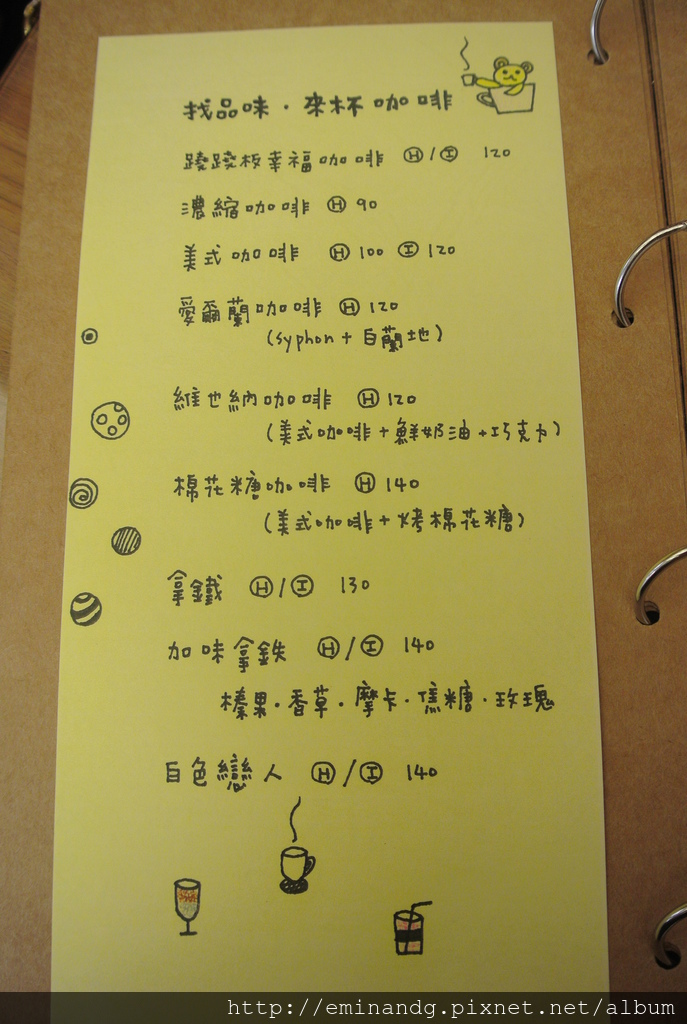 找品味．來杯咖啡
蹺蹺板幸福咖啡 Ⓗ/Ⓘ 120
濃縮咖啡 Ⓗ 90
美式咖啡 Ⓗ 100 Ⓘ 120
愛爾蘭咖啡 Ⓗ 120
(syphon+白蘭地)
維也納咖啡 Ⓗ 120
(美式咖啡+鮮奶油+巧克力)
棉花糖咖啡 Ⓗ 140
(美式咖啡+烤棉花糖)
拿鐵 Ⓗ/Ⓘ 130
加味拿鉄 Ⓗ/Ⓘ 140
榛果．香草．摩卡．焦糖．玫瑰
白色戀人 Ⓗ/Ⓘ 140
http://eminandg.pixnet.net/album